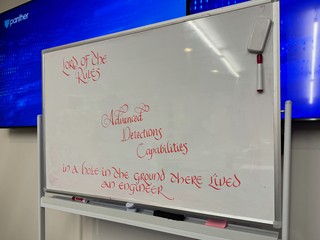 panther
Lord of the
Rules
Advanced
Detections
Capabilities
in a hole in the ground there lived
an engineer